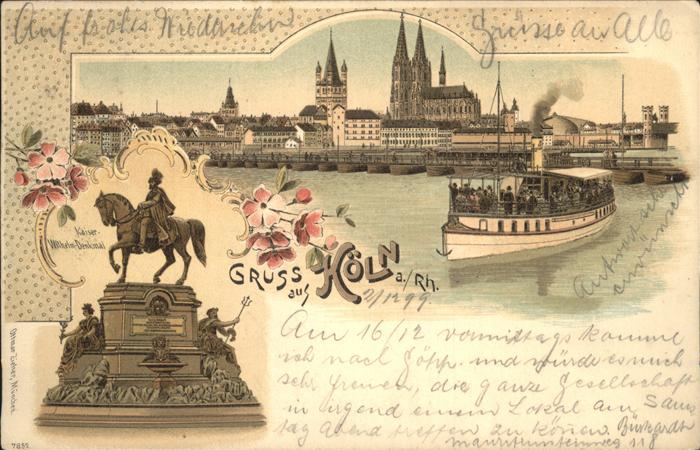 Auf frohes Wiedersehn
Grüsse an Alle
Kaiser-
Wilhelm-Denkmal
GRUSS
aus
KÖLN
a./Rh.
2/12 99.
Antwort sehr
erwünscht
Am 16/12 vormittags komme
ich nach Göpp. und würde es mich
sehr freuen, die ganze Gesellschaft
in irgend einem Lokal am Sams
tag Abend treffen zu können. Burkhardt
Mauritiussteinweg 118
Ottmar Zieher, München.
7852